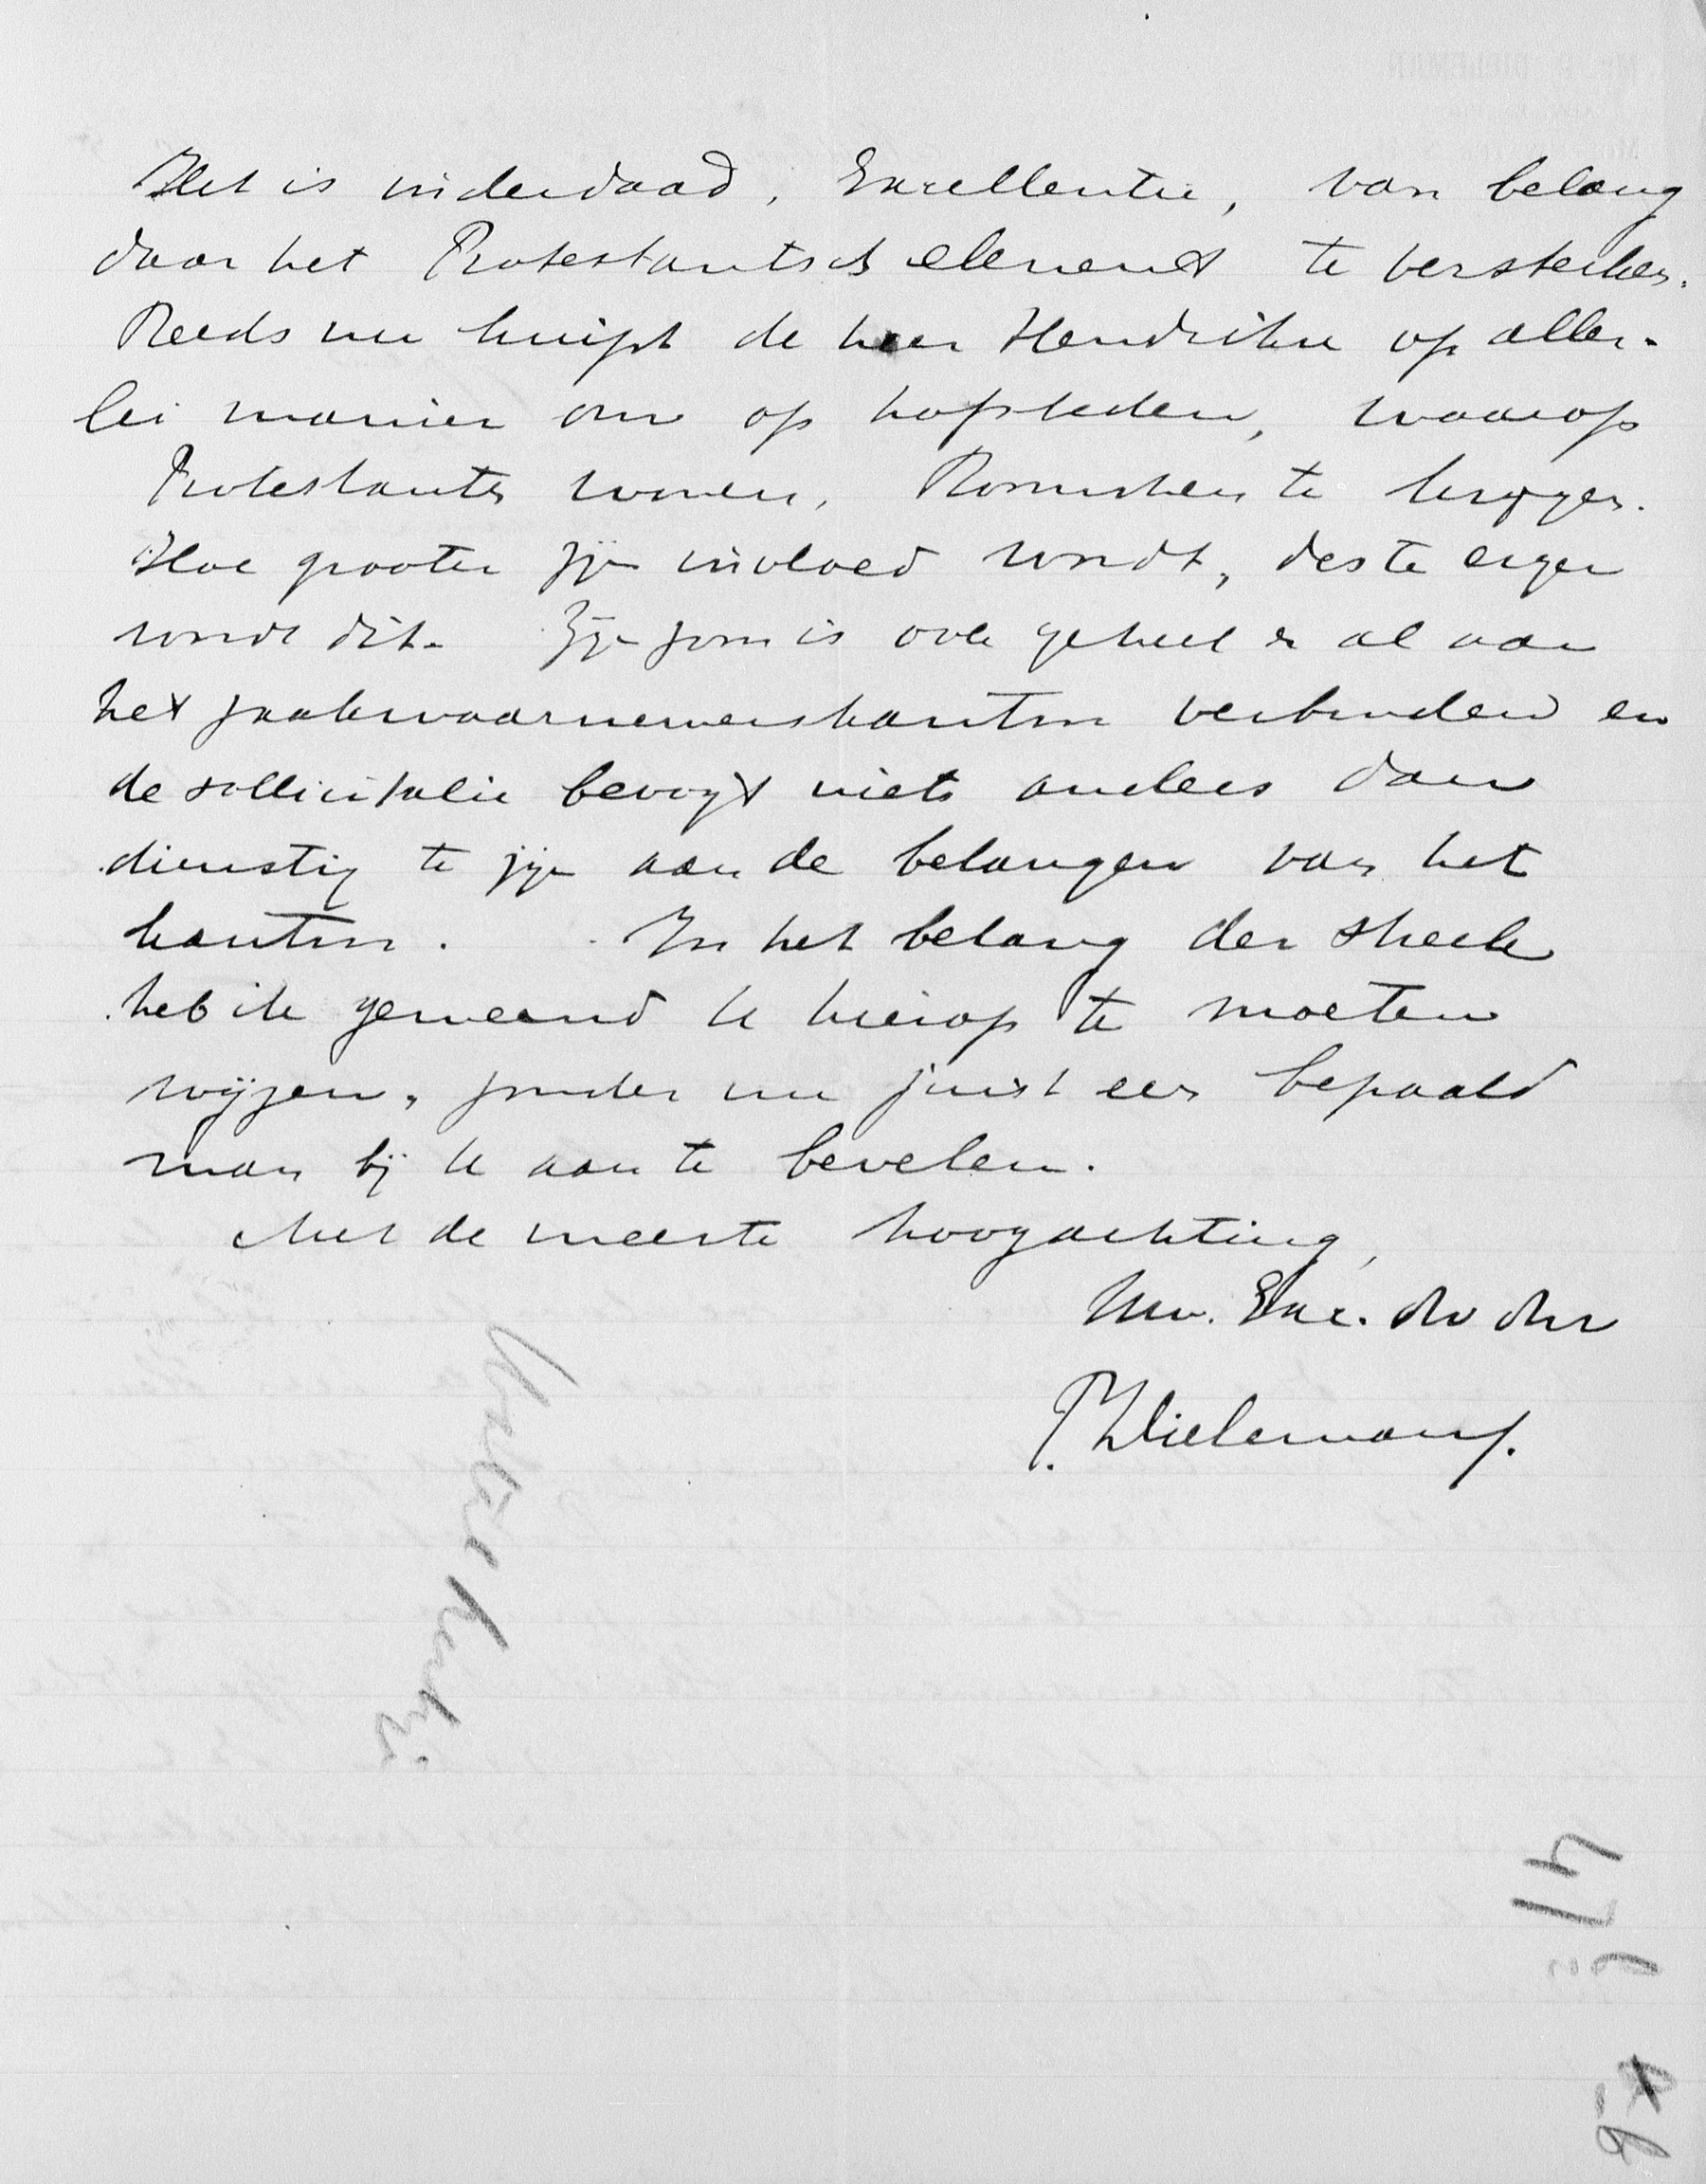 Het is inderdaad, Excellentie, van belang
daar het Protestantsch element te versterken.
Reeds nu knijpt de heer Hendrikse op aller-
lei manier om op hofsteden, waarop
Protestanten wonen, Roomschen te krijgen.
Hoe grooter zijn invloed wordt, des te erger
wordt dit. Zijn zoon is ook geheel en al aan
het zaakwaarnemerskantoor verbonden en
de sollicitatie beoogt niets anders dan
dienstig te zijn aan de belangen van het
kantoor. In het belang der streek
heb ik gemeend U hierop te moeten
wijzen, zonder nu juist een bepaald
man bij U aan te bevelen.
Met de meeste hoogachting,
Uw. Exc. dw dnr
P. Dieleman